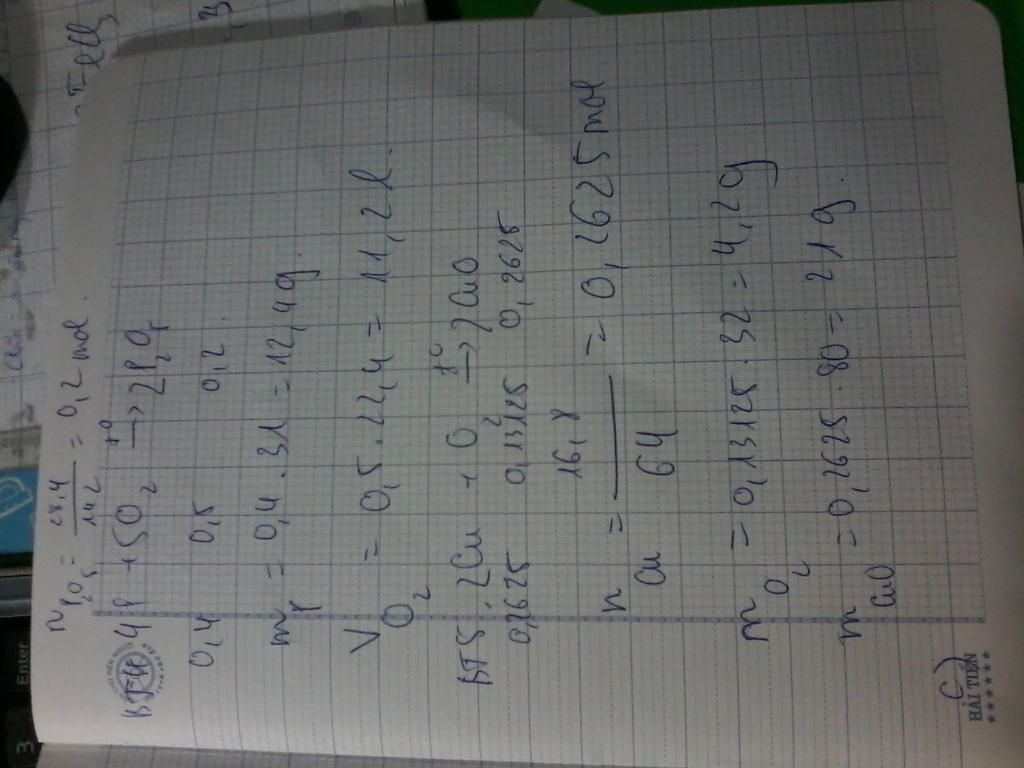 n P2O5 = 28,4/142 = 0,2 mol
BT4: 4P + 5O2 t°→ 2P2O5
0,4 0,5 0,2
m P = 0,4 . 31 = 12,4g.
V O2 = 0,5 . 22,4 = 11,2l.
BT5: 2Cu + O2 t°→ 2CuO
0,2625 0,13125 0,2625
n Cu = 16,8/64 = 0,2625 mol
m O2 = 0,13125 . 32 = 4,2g
m CuO = 0,2625 . 80 = 21g.
HẢI TIẾN
Enter
3